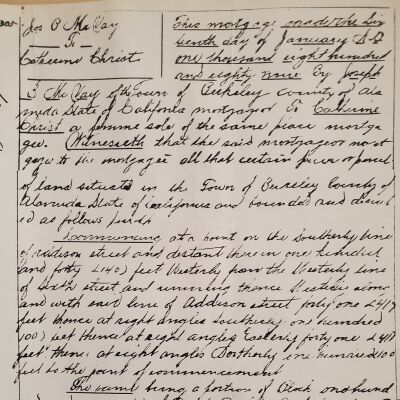 Jos P McVay
To
Catherine Christ
This mortgage made the Six
teenth day of January A.D
one thousand eight hundred
and eighty nine By Joseph
P McVay of the Town of Berkeley County of Ala
meda State of California mortgagor To Catherine
Christ a femme sole of the same place mortga
gee. Witnesseth that the said mortgagor mort
gages to the mortgagee all that certain piece or parcel
of land situate in the Town of Berkeley County of
Alameda State of California and bounded and descri
ed as follows
Commencing at a point on the Southerly line
of Addison street and distant therein one hundred
and forty (140) feet Westerly from the Westerly line
of Sixth street and running thence Westerly along
and with said line of Addison street forty one (41)
feet thence at right angles Southerly one hundred
100) feet thence at right angles Easterly forty one (41)
feet thence at right angles Northerly one hundred 100
feet to the point of commencement
The same being a portion of Block one hund